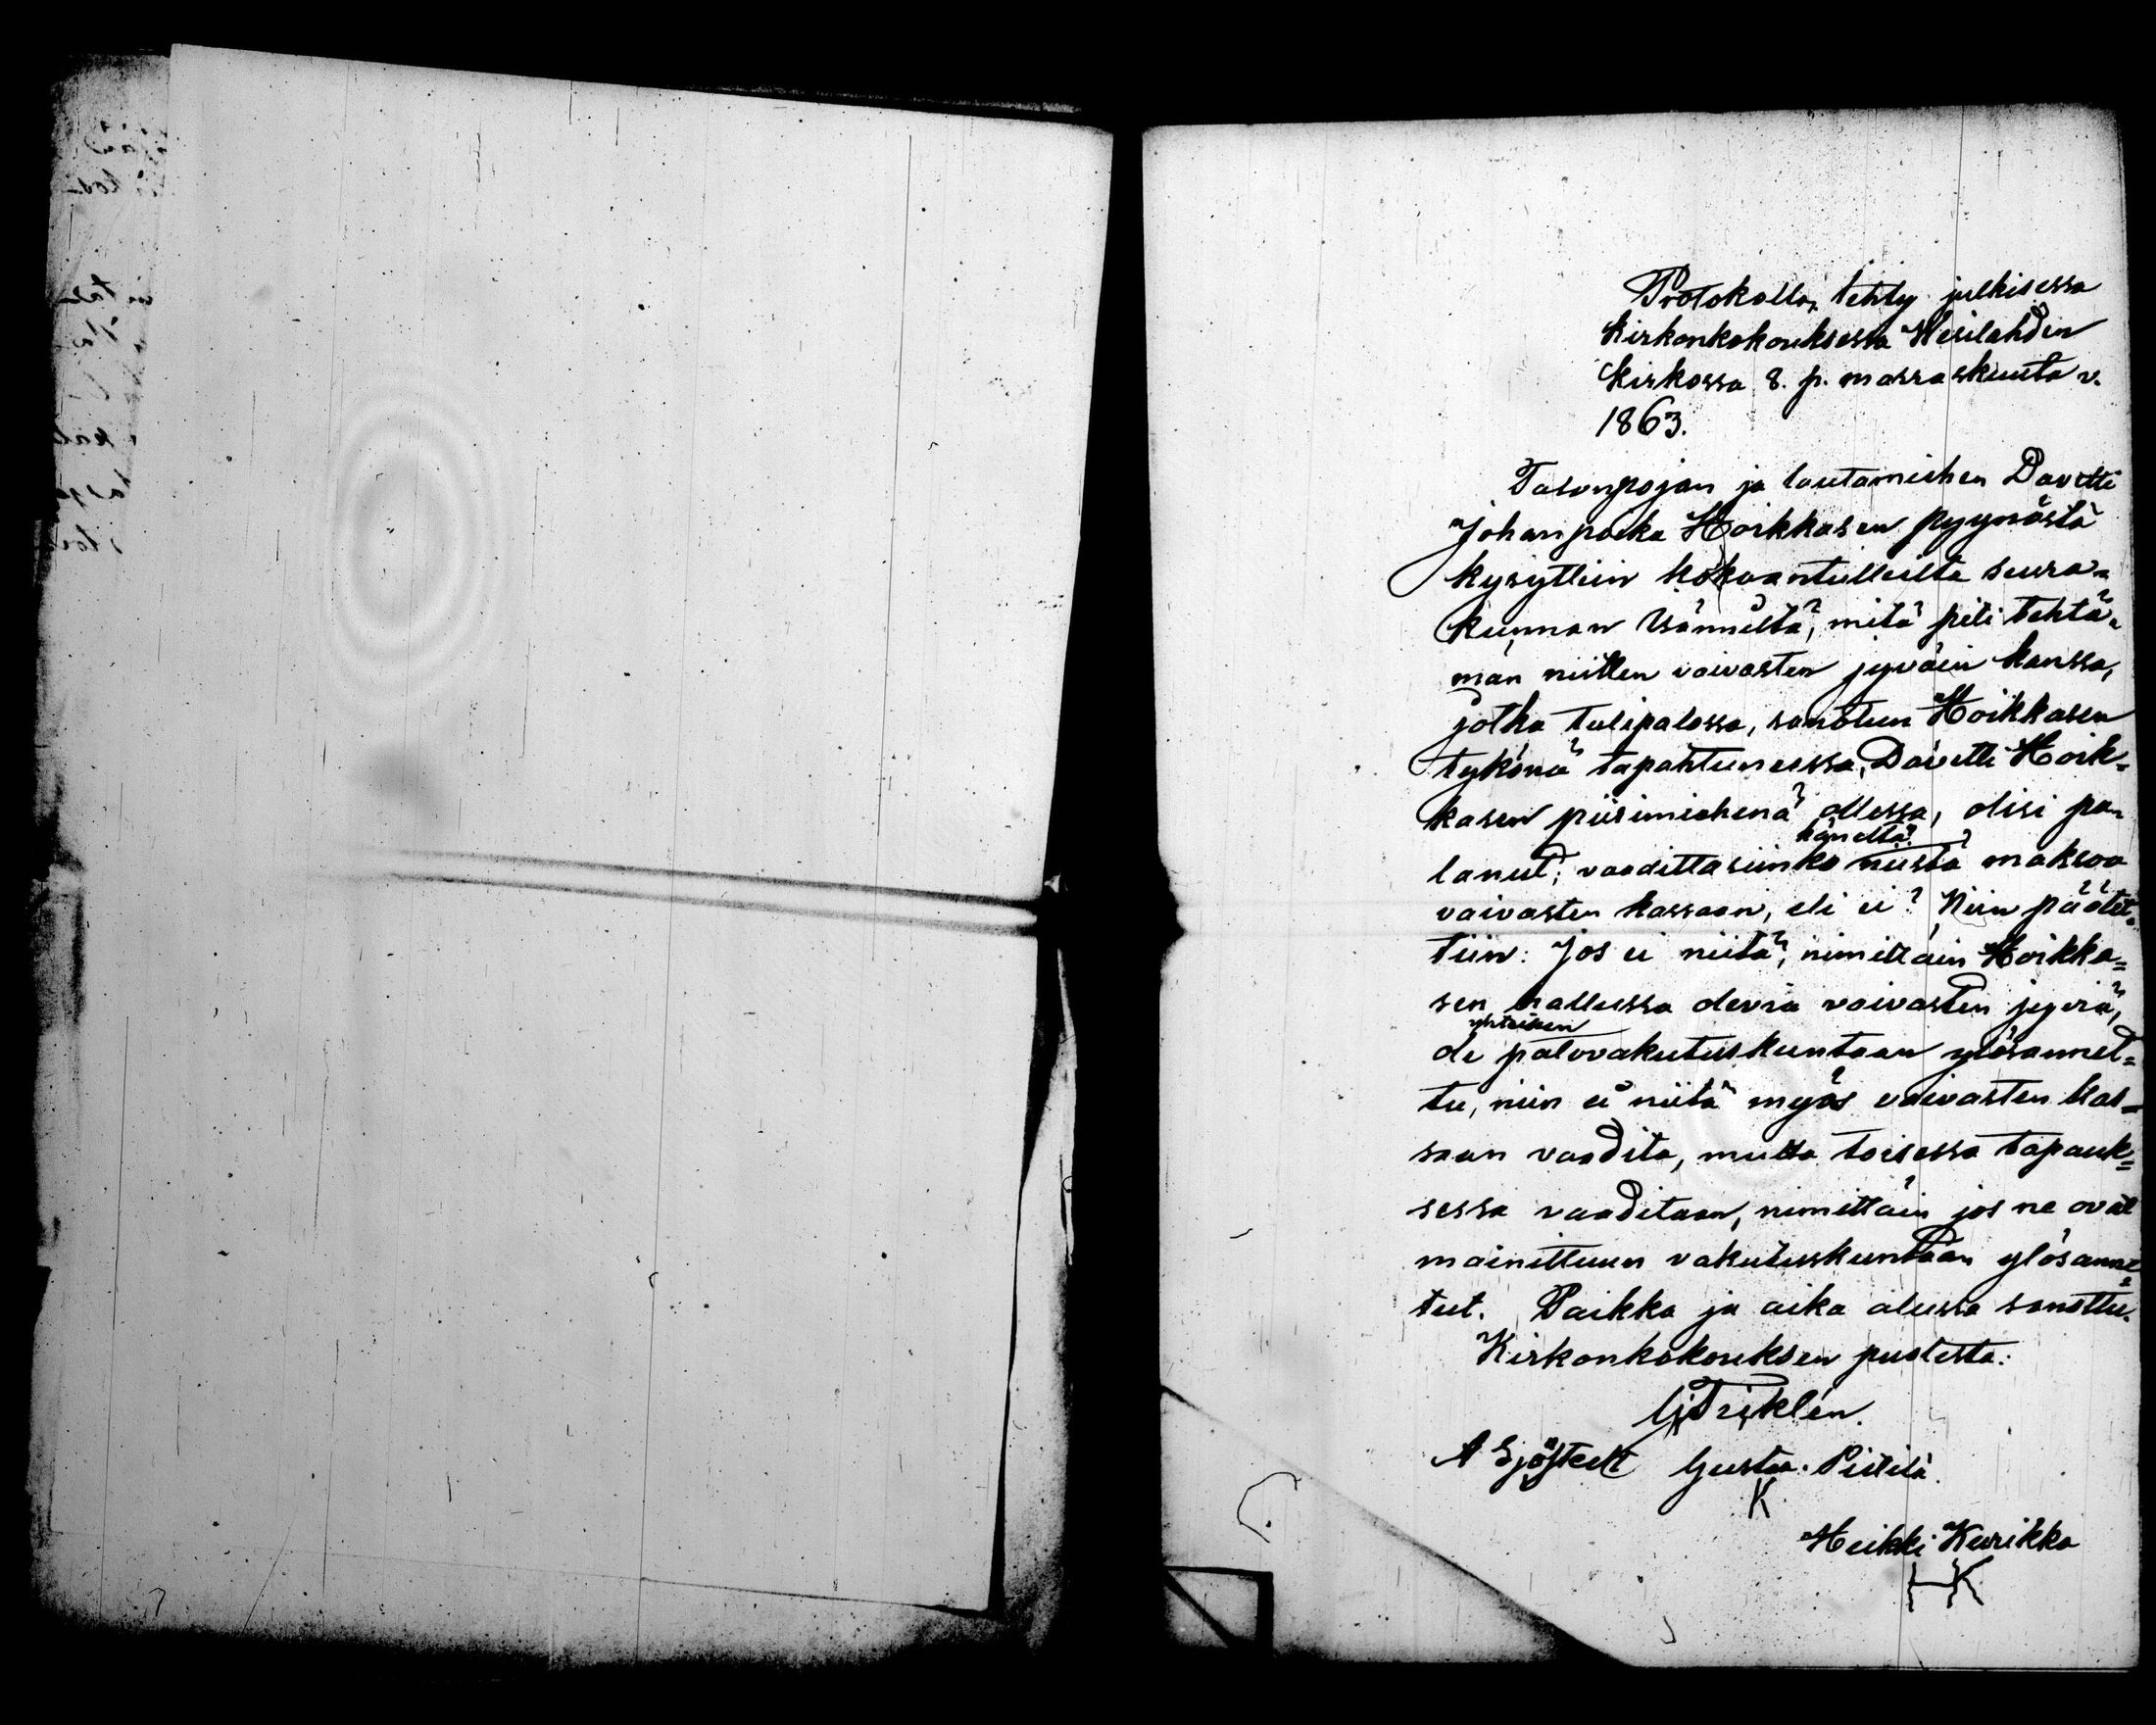 Protokolla, tehty julkisessa
kirkonkokouksessa Wesilahden
kirkossa 8. p. marraskuuta v.
1863.
Talonpojan ja lautamiehen Davetti
Johanpoika Hoikkasen pyynöstä
kysyttiin kokoontulleilta seura-
kunnan Isänniltä, mitä piti tehtä-
män niitten vaivasten jyväin kanssa,
jotka tulipalossa, sanotun Hoikkasen
tykönä tapahtuneessa, Davetti Hoik-
kasen piirimiehenä ollessa, olisi pa-
lanut; vaadittasiinko häneltä niistä maksoa
vaivasten kassaan, eli ei? Niin päätet-
tiin: Jos ei niitä, nimittäin Hoikka-
sen hallussa olevia vaivasten jyviä,
ole yhteiseen palovakutuskuntaan ylösannet-
tu, niin ei niitä myös vaivasten kas-
saan vaadita, mutta toisessa tapauk-
sessa vaaditaan, nimittäin jos ne ovat
mainittuun vakutuskuntaan ylösanne-
tut. Paikka ja aika alussa sanottu.
Kirkonkokouksen puolesta:
Triklén.
A Sjöstedt Gusta Pietilä.
K
Heikki Kurikka
HK